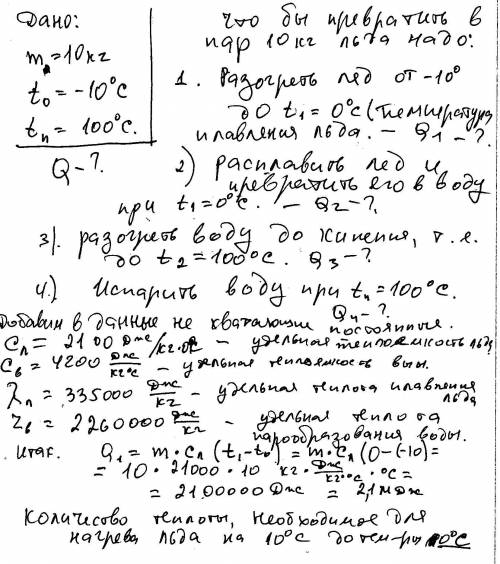 Дано:
m л = 10 кг
t₀ = -10°С
tп = 100°С.
Q - ?
что бы превратить в
пар 10 кг льда надо:
1. Разогреть лёд от -10°
до t₁ = 0°С (температура
плавления льда. - Q₁ - ?
2) расплавить лёд и
превратить его в воду
при t₁ = 0°С. - Q₂ - ?
3). разогреть воду до кипения, т.е.
до t₂ = 100°С. Q₃ - ?
4.) Испарить воду при tп = 100°С.
Q₄ - ?
Добавим в данные не хватающие постоянные.
Cл = 2100 Дж/кг·°С - удельная теплоёмкость льда
Cв = 4200 Дж/кг°С - удельная теплоёмкость воды.
λл = 335000 Дж/кг - удельная теплота плавления
льда
Zв = 2260000 Дж/кг - удельная теплота
парообразования воды.
Итак. Q₁ = m·Cл (t₁-t₀) = m·Cл (0-(-10) =
= 10 · 21000 · 10 кг · Дж/кг°С · °С =
= 2100000 Дж = 2,1 мДж
Количество теплоты, необходимое для
нагрева льда на 10°С до тем-ры 0°С